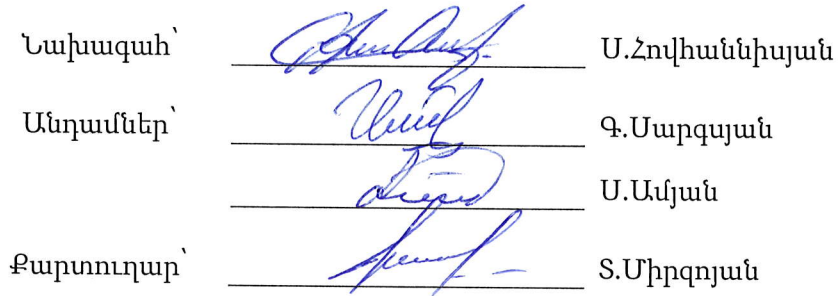 Նախագահ՝ Ս.Հովհաննիսյան
Անդամներ՝ Գ.Սարգսյան
Ս.Ամյան
Քարտուղար՝ Տ.Միրզոյան